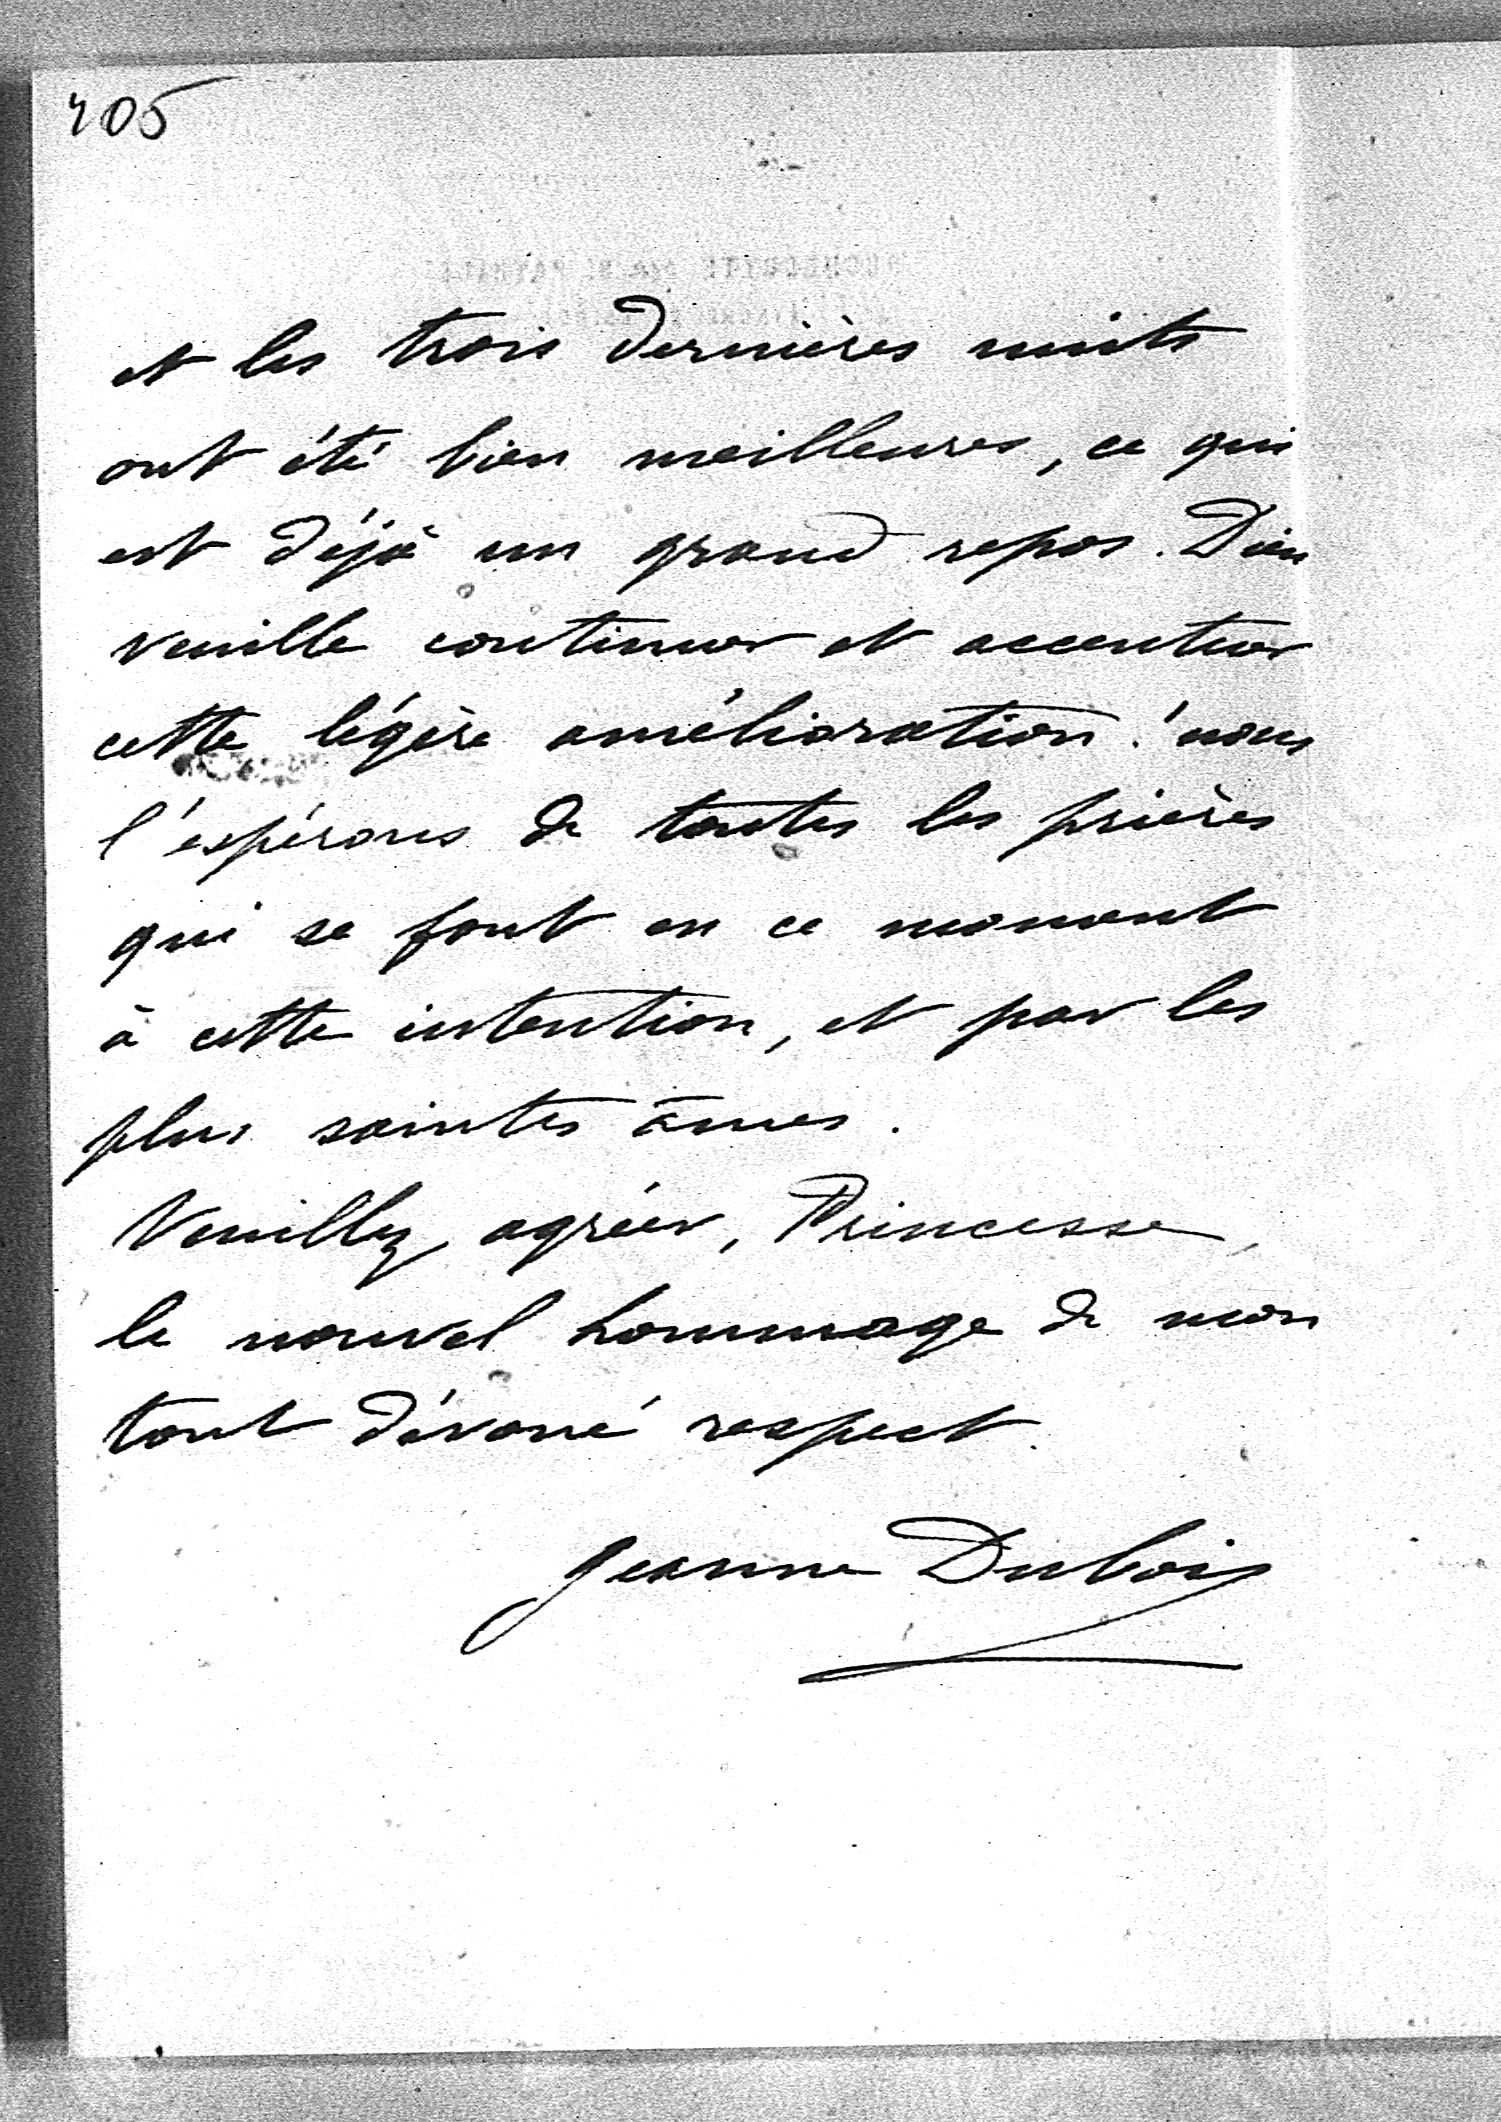 405
et les trois dernières nuits
ont été bien meilleures, ce qui
est déjà un grand repos. Dieu
veuille continuer et accentuer
cette légère amélioration ! nous
l'espérons de toutes les prières
qui se font en ce moment
à cette intention, et par les
plus saintes âmes.
Veuillez agréer, Princesse,
le nouvel hommage de mon
tout dévoué respect.
Jeanne Dubois